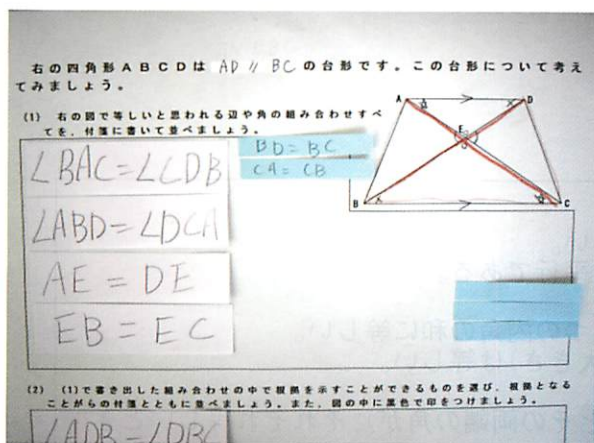 右の四角形ABCDは AD // BC の台形です。この台形について考え
てみましょう。
(1) 右の図で等しいと思われる辺や角の組み合わせすべ
てを、付箋に書いて並べましょう。
∠BAC=∠CDB
∠ABD=∠DCA
AE=DE
EB=EC
BD=BC
CA=CB
A
D
E
B
C
(2) (1)で書き出した組み合わせの中で根拠を示すことができるものを選び、根拠となる
ことがらの付箋とともに並べましょう。また、図の中に黒色で印をつけましょう。
∠ADB=∠DBC